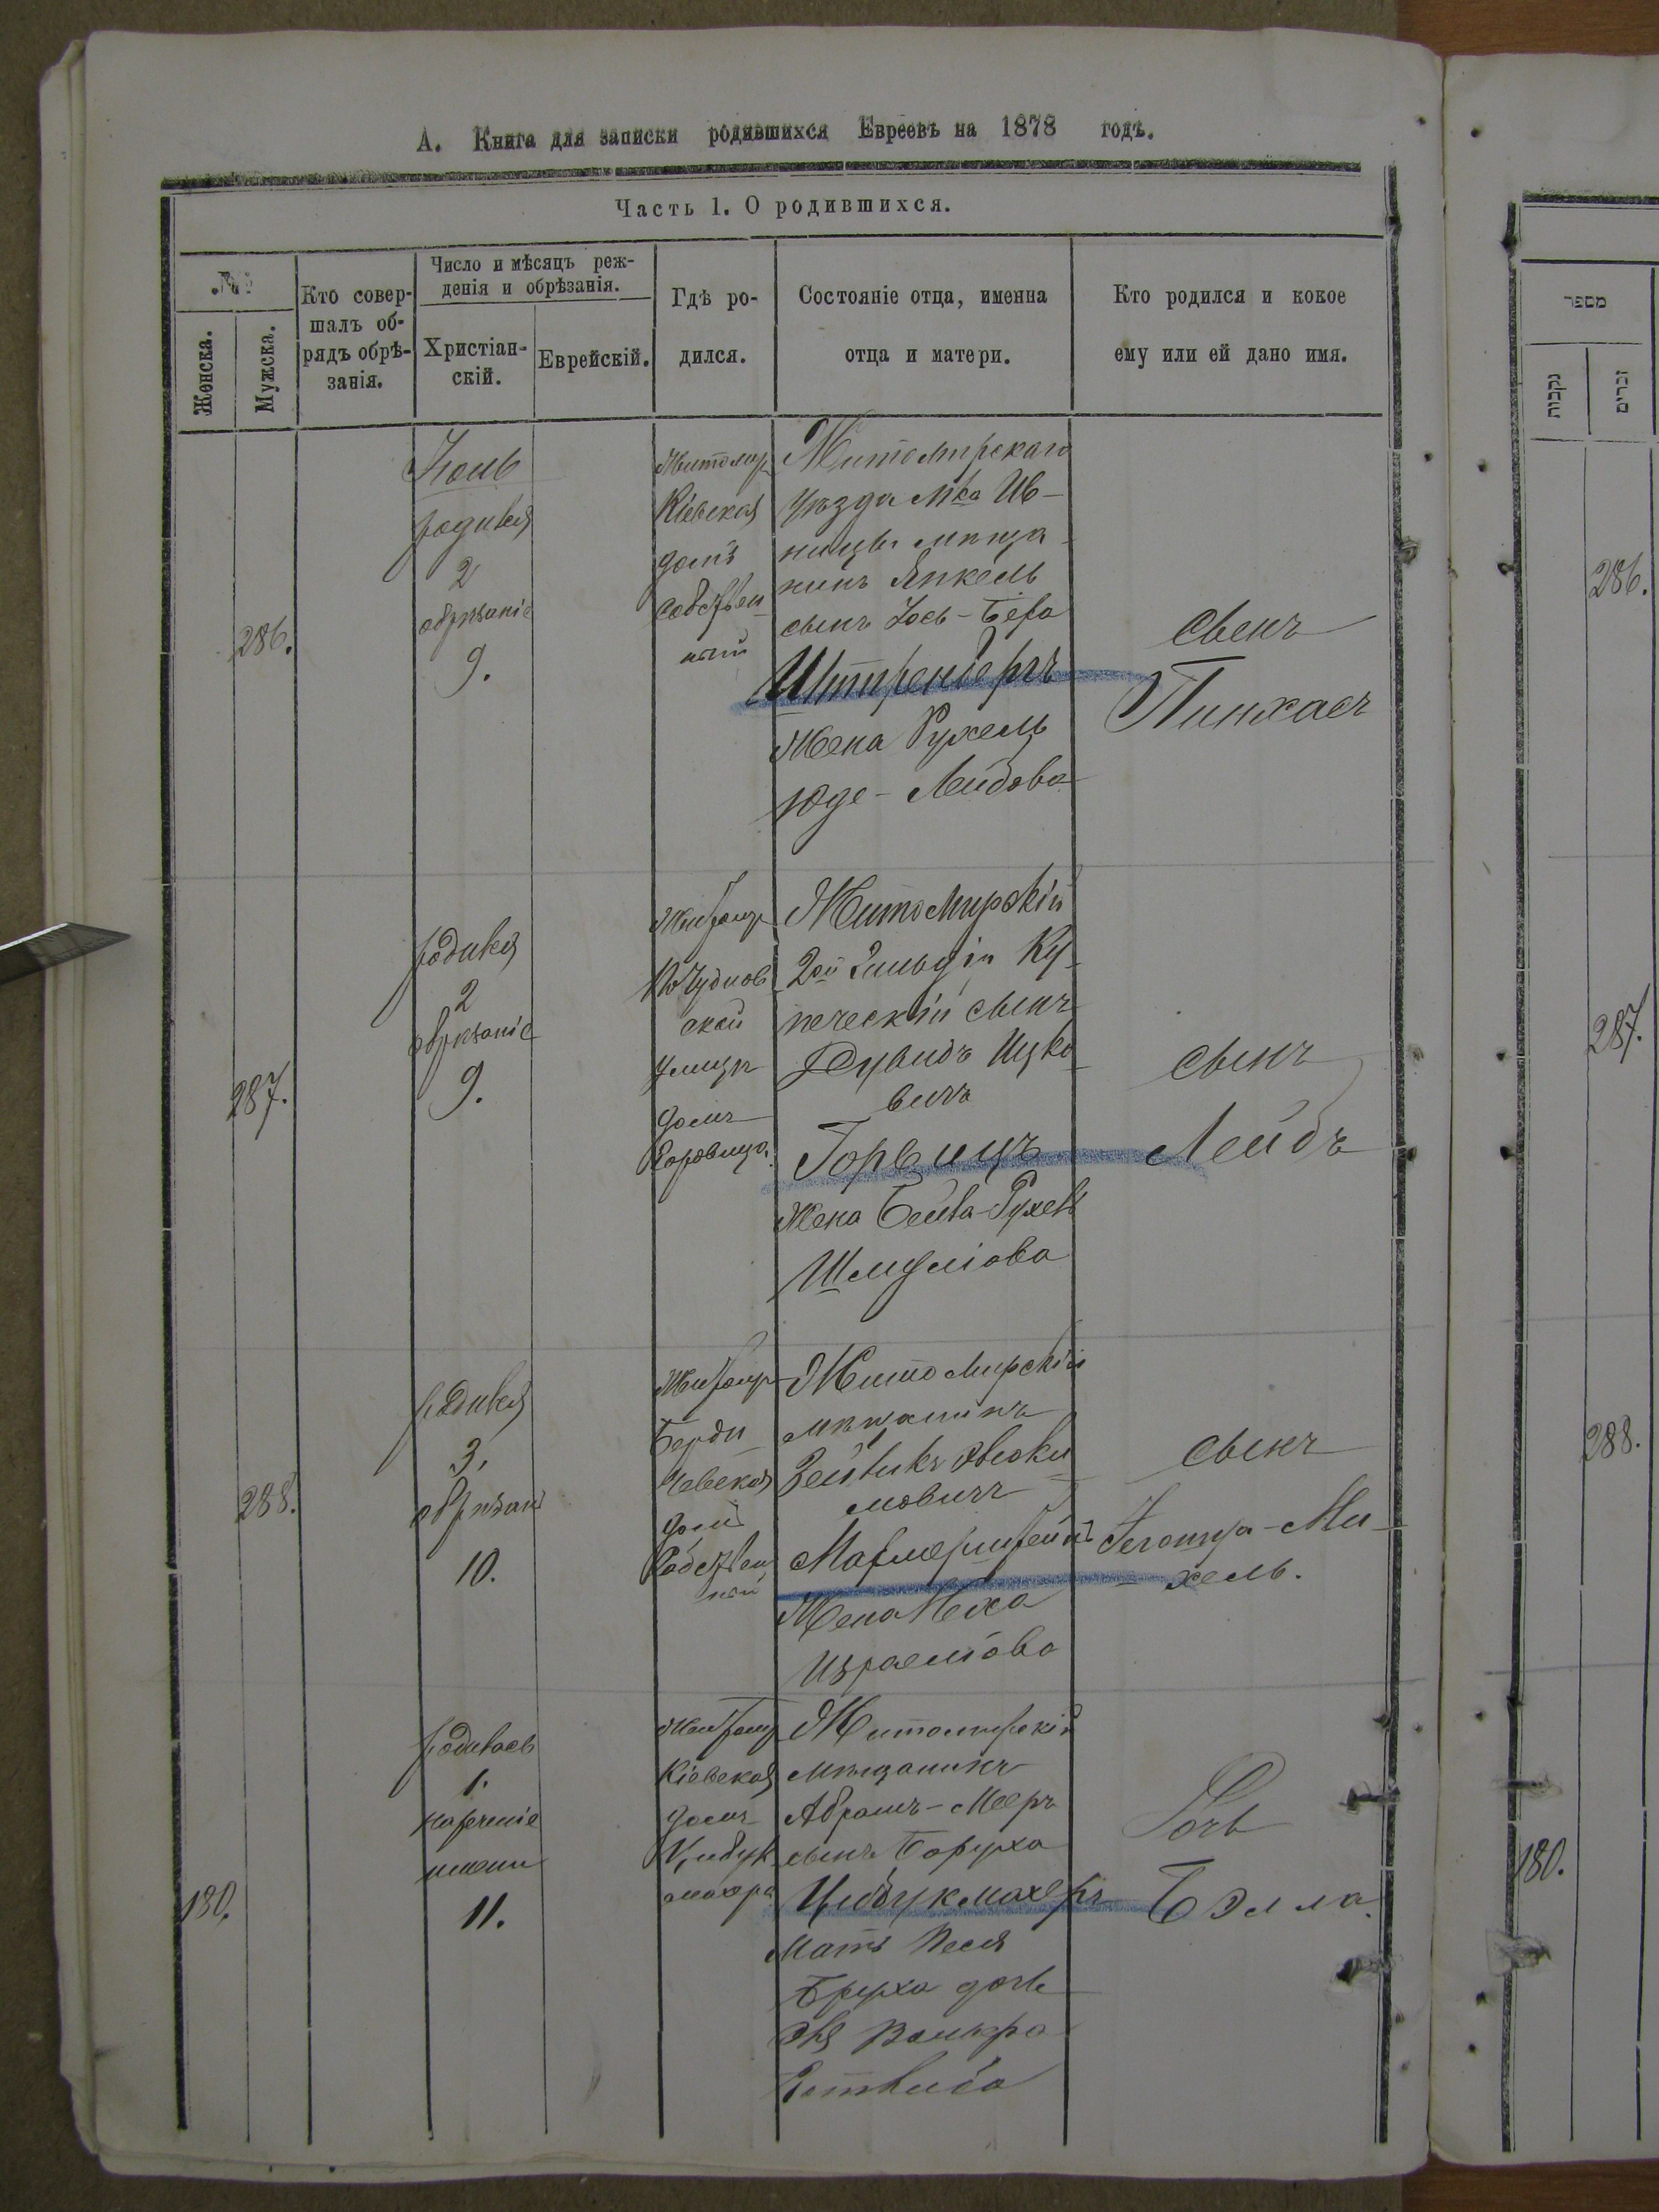 А. Книга для записки родившихся Евреевъ на 1878 годъ.
Часть 1. О родившихся.
№
Женска.
Мужска.
Кто совер-
шалъ об-
рядъ обрѣ-
занія.
Число и мѣсяцъ реж-
денія и обрѣзанія.
Христіан-
скій.
Еврейскій.
Гдѣ ро-
дился.
Состояніе отца, именна
отца и матери.
Кто родился и кокое
ему или ей дано имя.
286.
родился
2
обрѣзаніе
9.
Житомир
Кіевская
домъ
собствен
ный
Житомирскаго
уѣзда мка Ив-
ницы мѣща-
нинъ Янкель
сынъ Іось-Бера
Штренбергъ
Жена Рухель
Юде-Лейбова
сынъ
Пинхасъ
287.
родился
2
обрѣзаніе
9.
Житомир
по Чуднов
ской
улицѣ
домъ
Горовица.
Житомирскій
2ой Гильдіи Ку-
печескій сынъ
Дувидъ Ицко-
вичъ
Горвицъ
Жена Бейла-Рухель
Шмулiова
сынъ
Лейбъ
288.
родился
3.
обрѣзані
10.
Житомир
Берди
чевская
домъ
собствен
ный
Житомирскій
мѣщанинъ
мовичъ
Жена
Израелiова
сынъ
Ми-
хель.
180.
родилась
1.
нареченіе
имени
11.
Житомир
Кіевская
домъ
Цибук
махера
Житомирскій
мѣщанинъ
Абрамъ-Мееръ
сынъ Боруха
Цибукмахеръ
Мать Песя
Бруха дочь
Дочь
Бэлла.
מספר
נקבות
זכרים
286.
287.
288.
180.